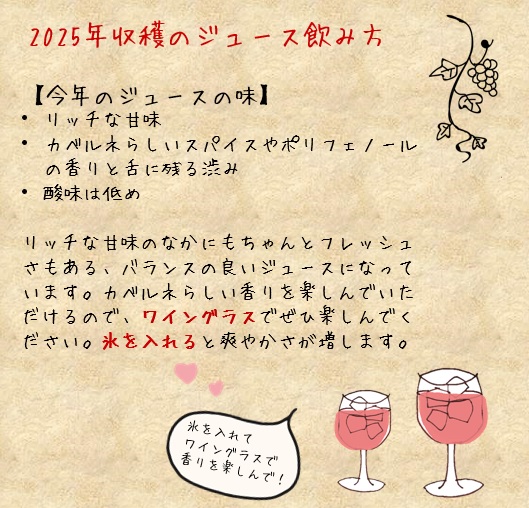 2025年収穫のジュース飲み方
【今年のジュースの味】
• リッチな甘味
• カベルネらしいスパイスやポリフェノール
の香りと舌に残る渋み
• 酸味は低め
リッチな甘味のなかにもちゃんとフレッシュ
さもある、バランスの良いジュースになって
います。カベルネらしい香りを楽しんでいた
だけるので、ワイングラスでぜひ楽しんでく
ださい。氷を入れると爽やかさが増します。
氷を入れて
ワイングラスで
香りを楽しんで！